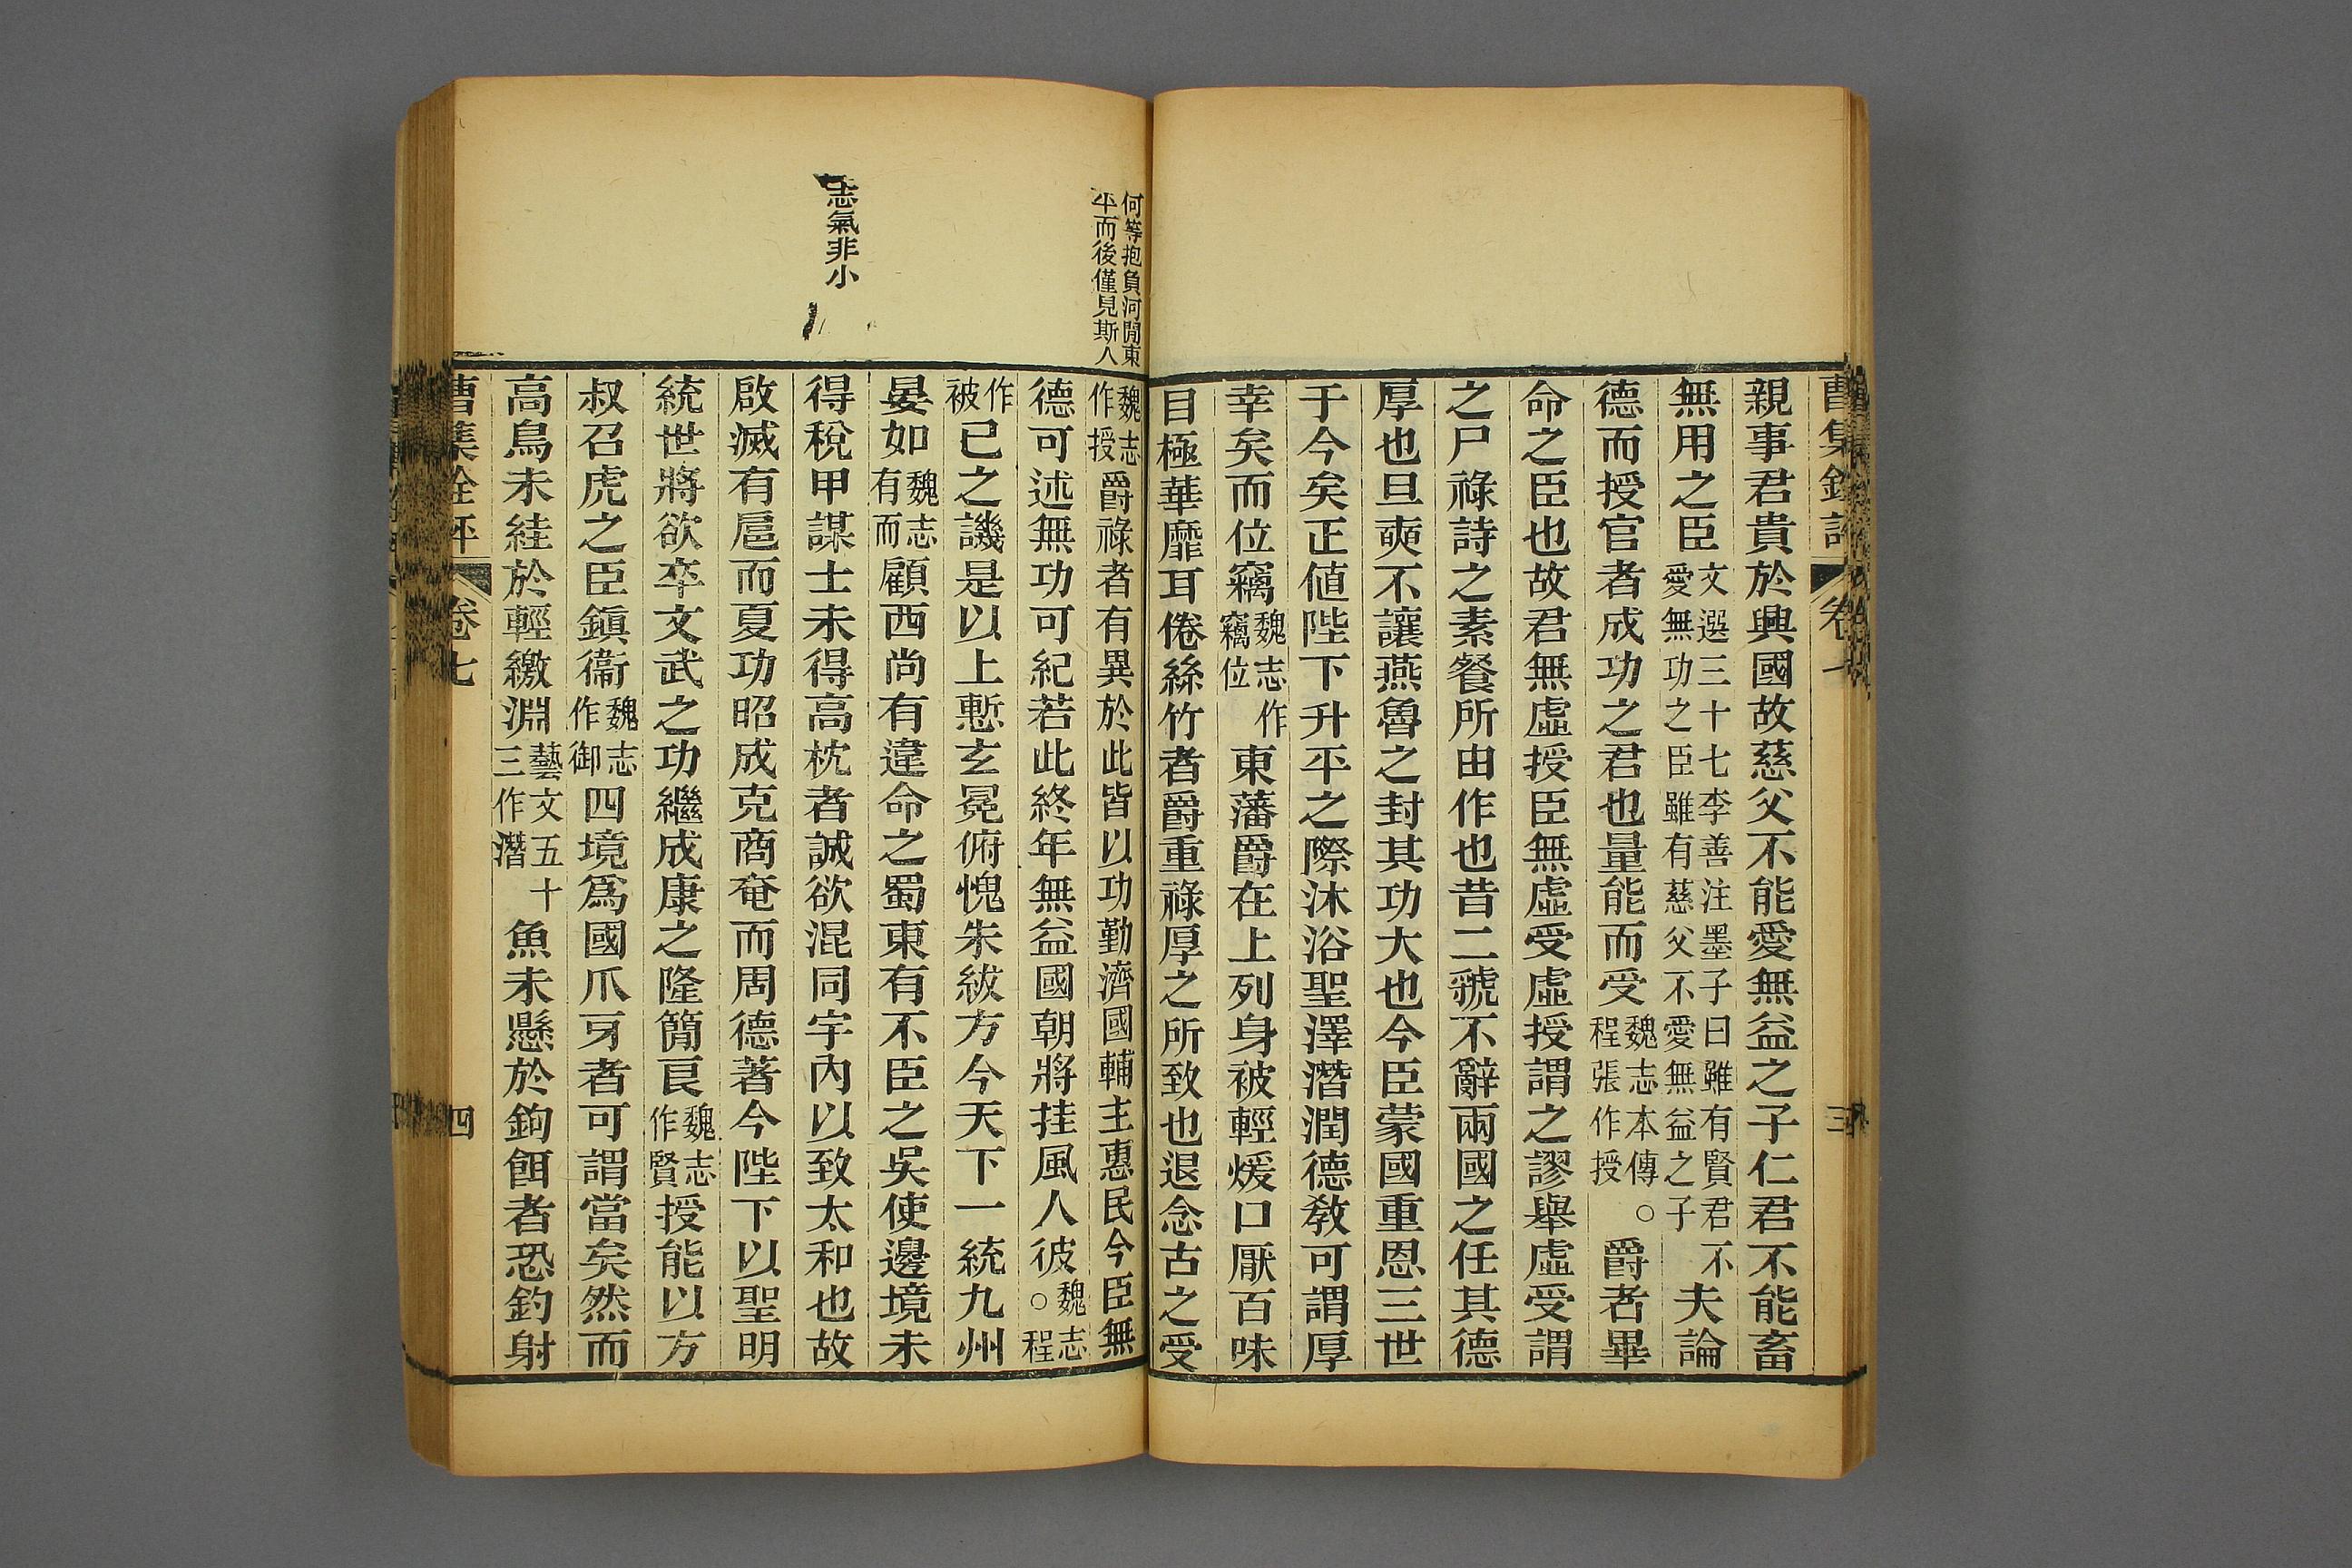 曹集銓評 卷七 三
親事君貴於興國故慈父不能愛無益之子仁君不能畜
無用之臣文選三十七李善注墨子曰雖有賢君不愛無功之臣雖有慈父不愛無益之子夫論
德而授官者成功之君也量能而受魏志本傳○程張作授爵者畢
命之臣也故君無虛授臣無虛受虛授謂之謬舉虛受謂
之尸祿詩之素餐所由作也昔二虢不辭兩國之任其德
厚也旦奭不讓燕魯之封其功大也今臣蒙國重恩三世
于今矣正値陛下升平之際沐浴聖澤潛潤德敎可謂厚
幸矣而位竊魏志作竊位東藩爵在上列身被輕煖口厭百味
目極華靡耳倦絲竹者爵重祿厚之所致也退念古之受
何等抱負河閒東
平而後僅見斯人
魏志作授爵祿者有異於此皆以功勤濟國輔主惠民今臣無
德可述無功可紀若此終年無益國朝將挂風人彼魏志○程
作被已之譏是以上慙玄冕俯愧朱紱方今天下一統九州
晏如魏志有而顧西尚有違命之蜀東有不臣之吳使邊境未
志氣非小
得稅甲謀士未得高枕者誠欲混同宇內以致太和也故
啟滅有扈而夏功昭成克商奄而周德著今陛下以聖明
統世將欲卒文武之功繼成康之隆簡良魏志作賢授能以方
叔召虎之臣鎭衞魏志作御四境爲國爪牙者可謂當矣然而
高鳥未絓於輕繳淵藝文五十三作潛魚未懸於鉤餌者恐釣射
曹集銓評 卷七 四